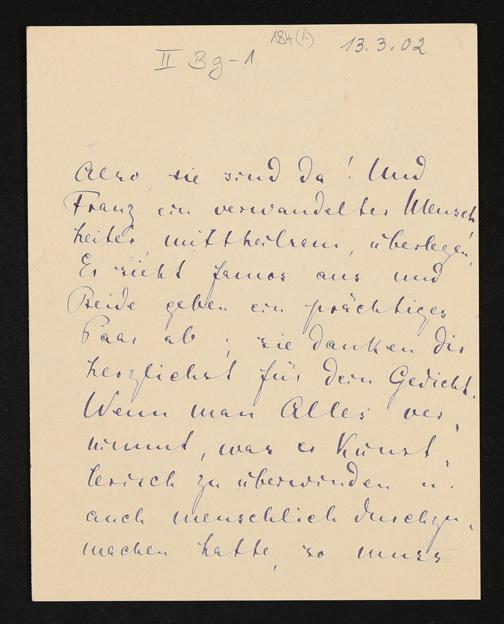 184(1)
13.3.02
II Bg-1
Also sie sind da! Und
Franz ein verwandelter Mensch
heiter, mittheilsam, überlegen.
Er sieht famos aus und
Beide geben ein prächtiges
Paar ab; sie danken dir
herzlichst für dein Gedicht.
Wenn man Alles ver-
nimmt, was er Künst-
lerisch zu überwinden u.
auch menschlich durchzu-
machen hatte, so muss